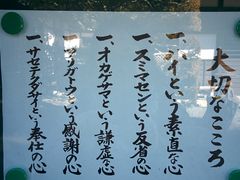 大切なこころ
一、ハイという素直な心
一、スミマセンという反省の心
一、オカゲサマという謙虚な心
一、アリガトウという感謝の心
一、サセテクダサイという奉仕の心